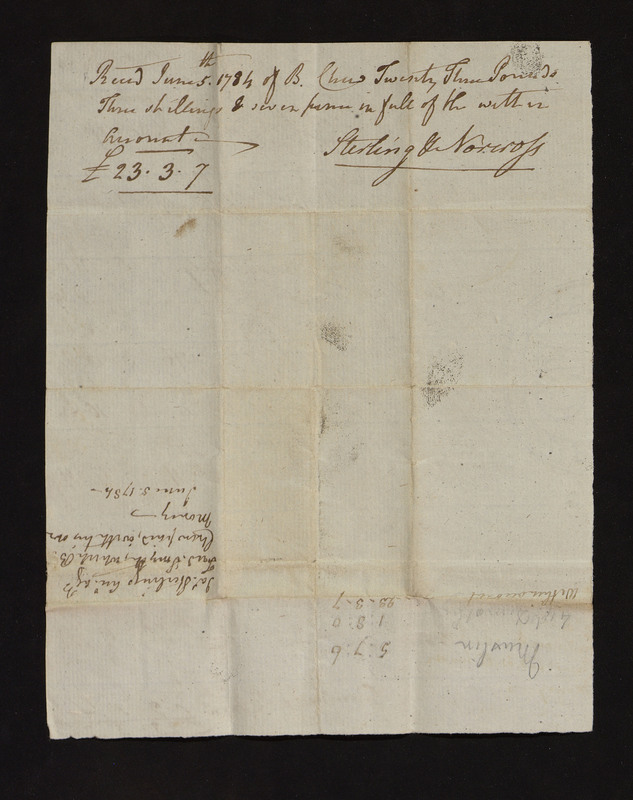 Recd June 5th. 1784 of B. Chew Twenty Three Pounds
Three shillings & seven pence in full of the within
Amount
Sterling & Norcross
£ 23. 3. 7
Jas. Sterling's
which B.
Chew paid, with my own
Money
June 5. 1784
Muslin
5: 7: 6
1: 8: 0
Within
23-3-7